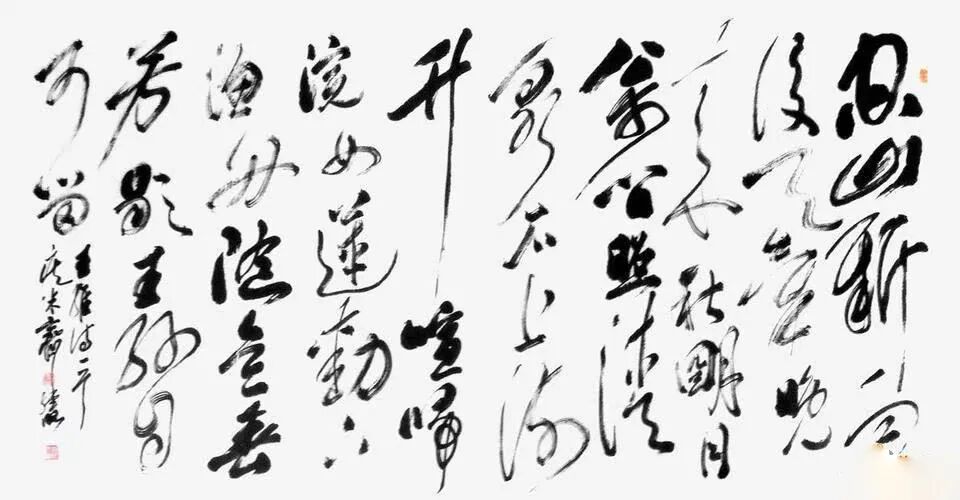 空山新雨
後天氣晚
来秋明月
松间照清
泉石上流
竹喧歸
浣女蓮動下
漁舟随意春
芳歇王孫自
可留
王維诗一首